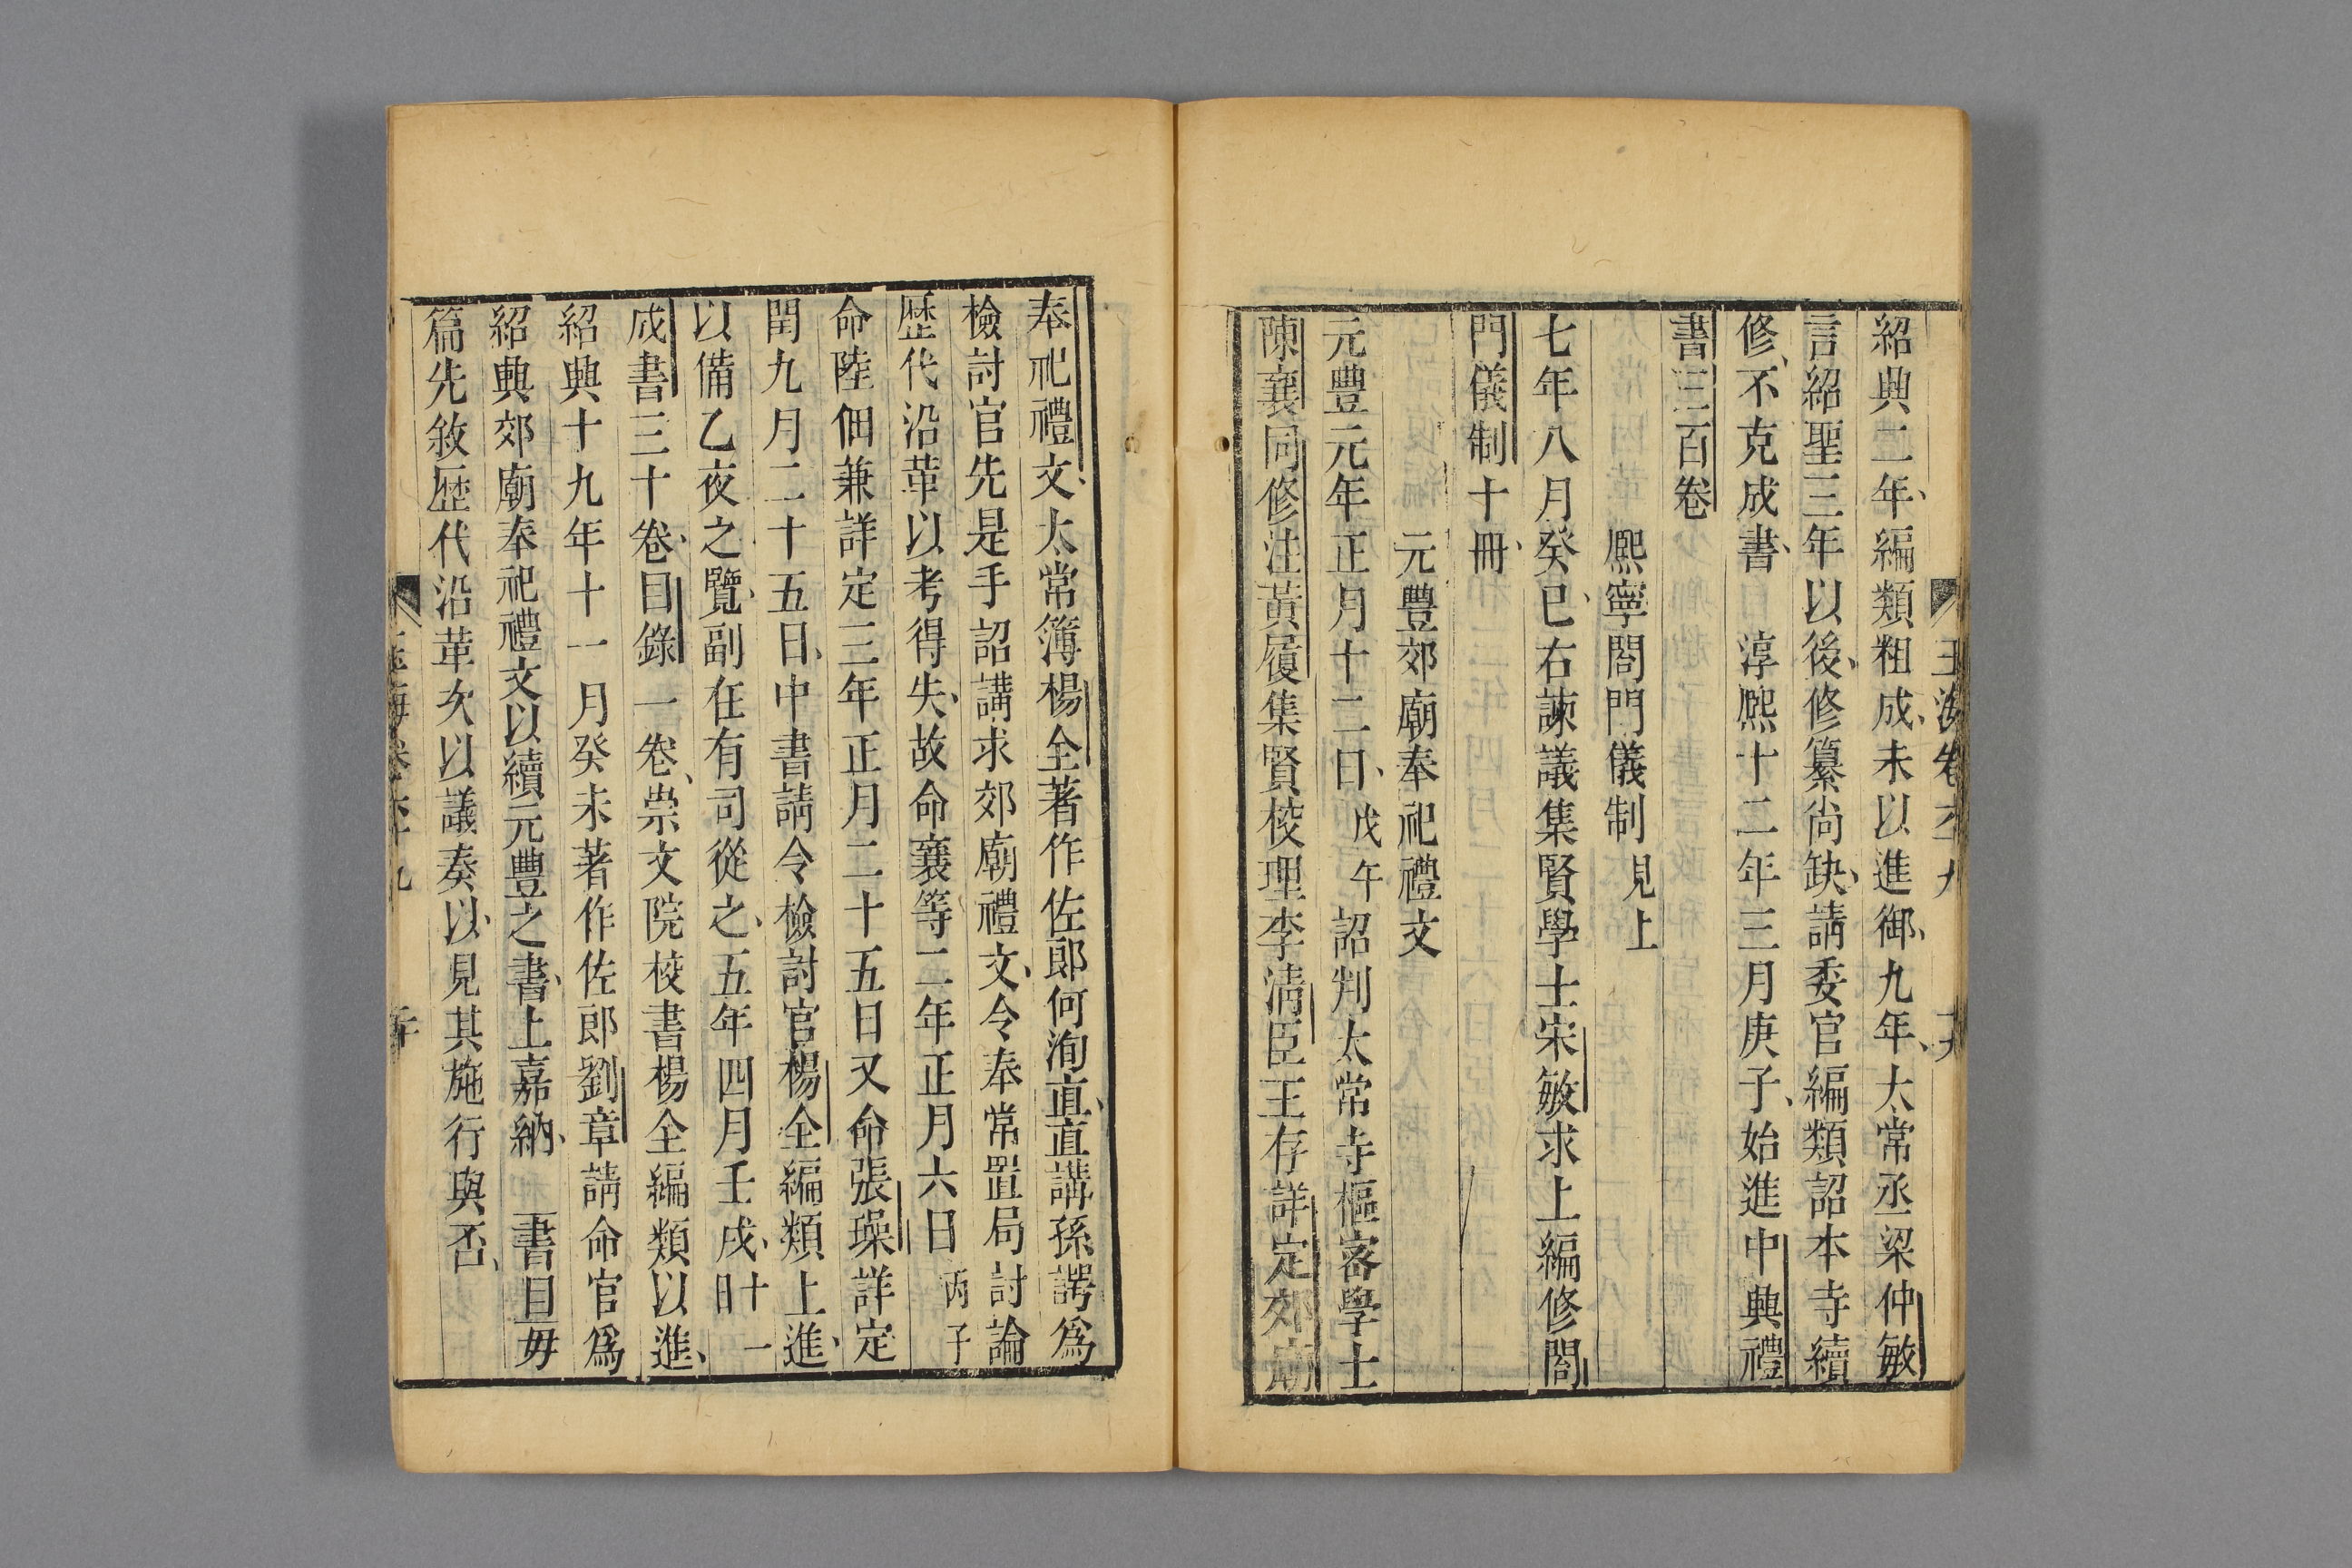 玉海卷六十九
十九
紹興二年編類粗成未以進御九年太常丞梁仲敏
言紹聖三年以後修纂尚缺請委官編類詔本寺續
修不克成書　淳熙十二年三月庚子始進中興禮
書三百卷
熙寧閤門儀制見上
七年八月癸巳右諫議集賢學士宋敏求上編修閤
門儀制十冊
元豐郊廟奉祀禮文
元豐元年正月十二日戊午詔判太常寺樞密學士
陳襄同修注黃履集賢校理李清臣王存詳定郊廟
奉祀禮文太常簿楊全著作佐郎何洵直直講孫諤爲
檢討官先是手詔講求郊廟禮文令奉常置局討論
歴代沿革以考得失故命襄等二年正月六日丙子
命陸佃兼詳定三年正月二十五日又命張璪詳定
閏九月二十五日中書請令檢討官楊全編類上進
以備乙夜之覽副在有司從之五年四月壬戌十一日
成書三十卷目錄一卷崇文院校書楊全編類以進
紹興十九年十一月癸未著作佐郎劉章請命官爲
紹興郊廟奉祀禮文以續元豐之書上嘉納　書目毋
篇先敘歴代沿革次以議奏以見其施行與否
玉海卷六十九
二十